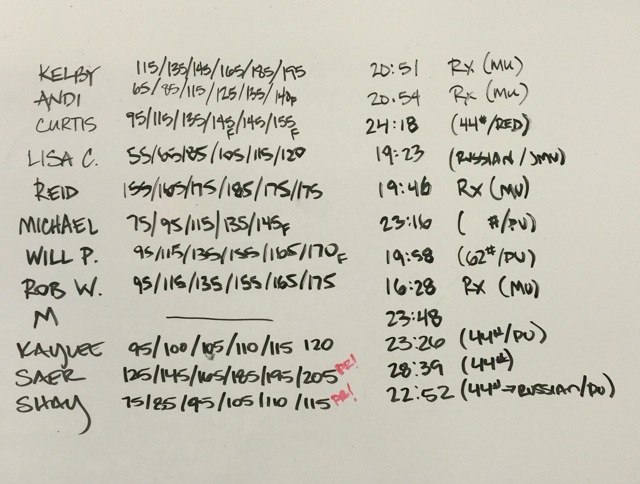 KELBY 115/135/145/165/185/195 20:51 Rx (MU)
ANDI 65/85/115/125/135/140F 20:54 Rx (MU)
CURTIS 95/115/135/145F/145/155F 24:18 (44#/RED)
LISA C. 55/65/85/105/115/120 19:23 (RUSSIAN/JMU)
REID 155/165/175/185/175/175 19:46 Rx (MU)
MICHAEL 75/95/115/135/145F 23:16 ( #/PU)
WILL P. 95/115/135/155/165/170F 19:58 (62#/PU)
ROB W. 95/115/135/155/165/175 16:28 Rx (MU)
M — 23:48
KAYLEE 95/100/105/110/115 120 23:26 (44#/PU)
SAER 125/145/165/185/195/205 PR! 28:39 (44#)
SHAY 75/85/95/105/110/115 PR! 22:52 (44#→RUSSIAN/PU)